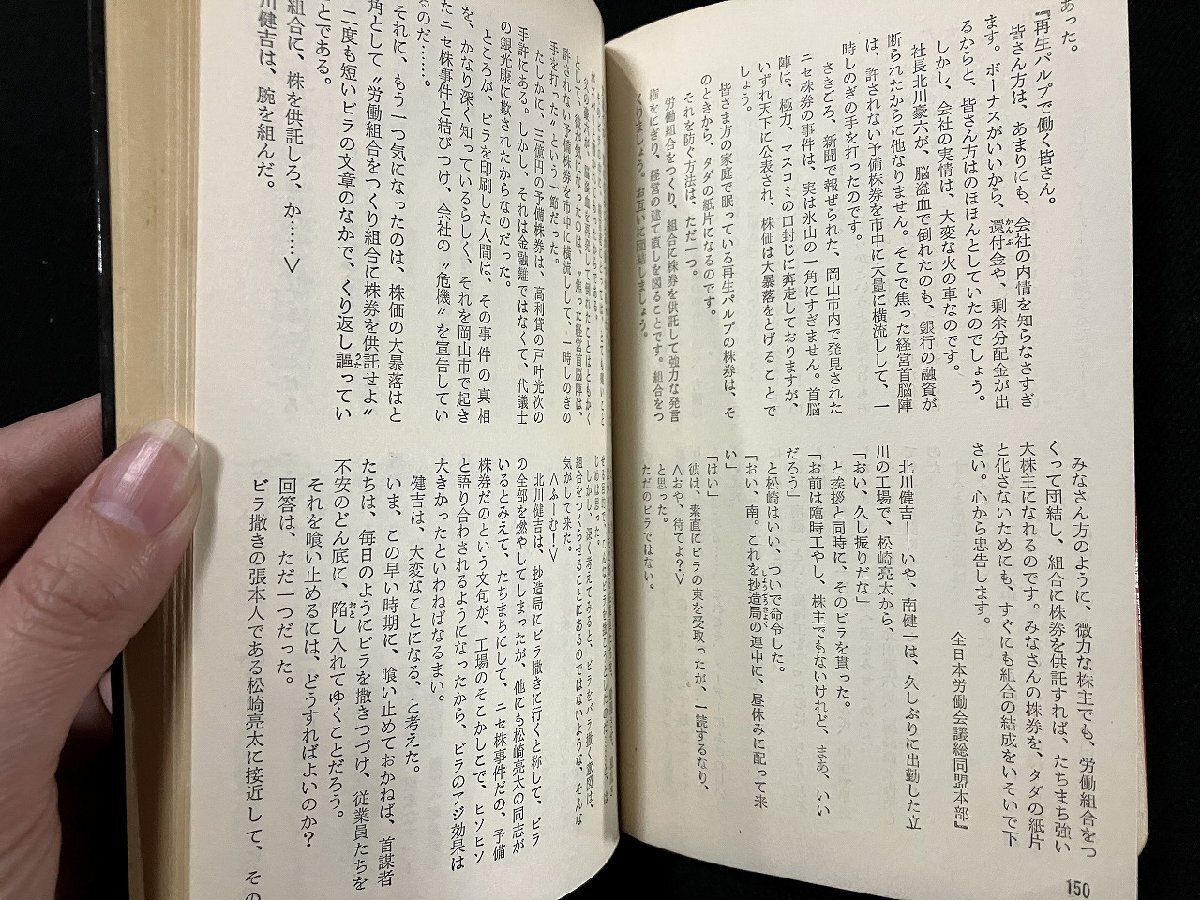 あった。
『再生パルプで働く皆さん。
皆さん方は、あまりにも、会社の内情を知らなさすぎ
ます。ボーナスがいいから、還付金や、剰余分配金が出
るからと、皆さん方はのほほんとしていたのでしょう。
しかし、会社の実情は、大変な火の車なのです。
社長北川豪六が、脳溢血で倒れたのも、銀行の融資が
断られたからに他なりません。そこで焦った経営首脳陣
は、許されない予備株券を市中に大量に横流しして、一
時しのぎの手を打ったのです。
さきごろ、新聞で報ぜられた、岡山市内で発見された
ニセ株券の事件は、実は氷山の一角にすぎません。首脳
陣は、極力、マスコミの口封じに奔走しておりますが、
いずれ天下に公表され、株価は大暴落をとげることで
しょう。
皆さま方の家庭で眠っている再生パルプの株券は、そ
のときから、タダの紙片になるのです。
それを防ぐ方法は、ただ一つ。
労働組合をつくり、組合に株券を供託して強力な発言
権をにぎり、経営の建て直しを図ることです。組合をつ
くりましょう。お互いに団結しましょう。
みなさん方のように、微力な株主でも、労働組合をつ
くって団結し、組合に株券を供託すれば、たちまち強い
大株主になれるのです。みなさんの株券を、タダの紙片
と化さないためにも、すぐにも組合の結成をいそいで下
さい。心から忠告します。
全日本労働会議総同盟本部』
北川健吉――いや、南健一は、久しぶりに出勤した立
川の工場で、松崎亮太から、
「おい、久し振りだな」
と挨拶と同時に、そのビラを貰った。
「お前は臨時工やし、株主でもないけれど、まあ、いい
だろう」
と松崎はいい、ついで命令した。
「おい、南。これを抄造局の連中に、昼休みに配って来
い」
「はい」
彼は、素直にビラの束を受取ったが、一読するなり、
<おや、待てよ?>
と思った。
ただのビラではない。
150
許されない予備株券を市中に横流しして、一時しのぎの
手を打った〟という一節だった。
たしかに、三億円の予備株券は、高利貸の戸叶光次の
手許にある。しかし、それは金融難ではなくて、代議士
の銀光康に欺されたからなのだった。
ところが、ビラを印刷した人間に、その事件の真相
を、かなり深く知っているらしく、それを岡山市で起き
たニセ株事件と結びつけ、会社の〝危機〟を宣告してい
るのだ……。
それに、もう一つ気になったのは、株価の大暴落はと
角として〝労働組合をつくり組合に株券を供託せよ〟
二度も短いビラの文章のなかで、くり返し謳ってい
とである。
組合に、株を供託しろ、か……>
川健吉は、腕を組んだ。
じめは思った。
しかし、深く考えてみると、ビラをバラ撒く意図は、
組合をつくらせることにあるのではないような、そんな
気がして来た。
<ふーむ!>
北川健吉は、抄造局にビラ撒きに行くと称して、ビラ
の全部を燃やしてしまったが、他にも松崎亮太の同志が
いるとみえて、たちまちにして、ニセ株事件だの、予備
株券だのという文句が、工場のそこかしこで、ヒソヒソ
と語り合わされるようになったから、ビラのアジ効果は
大きかったといわねばなるまい。
健吉は、大変なことになる、と考えた。
いま、この早い時期に、喰い止めておかねば、首謀者
たちは、毎日のようにビラを撒きつづけ、従業員たちを
不安のどん底に、陥し入れてゆくことだろう。
それを喰い止めるには、どうすればよいのか?
回答は、ただ一つだった。
ビラ撒きの張本人である松崎亮太に接近して、その